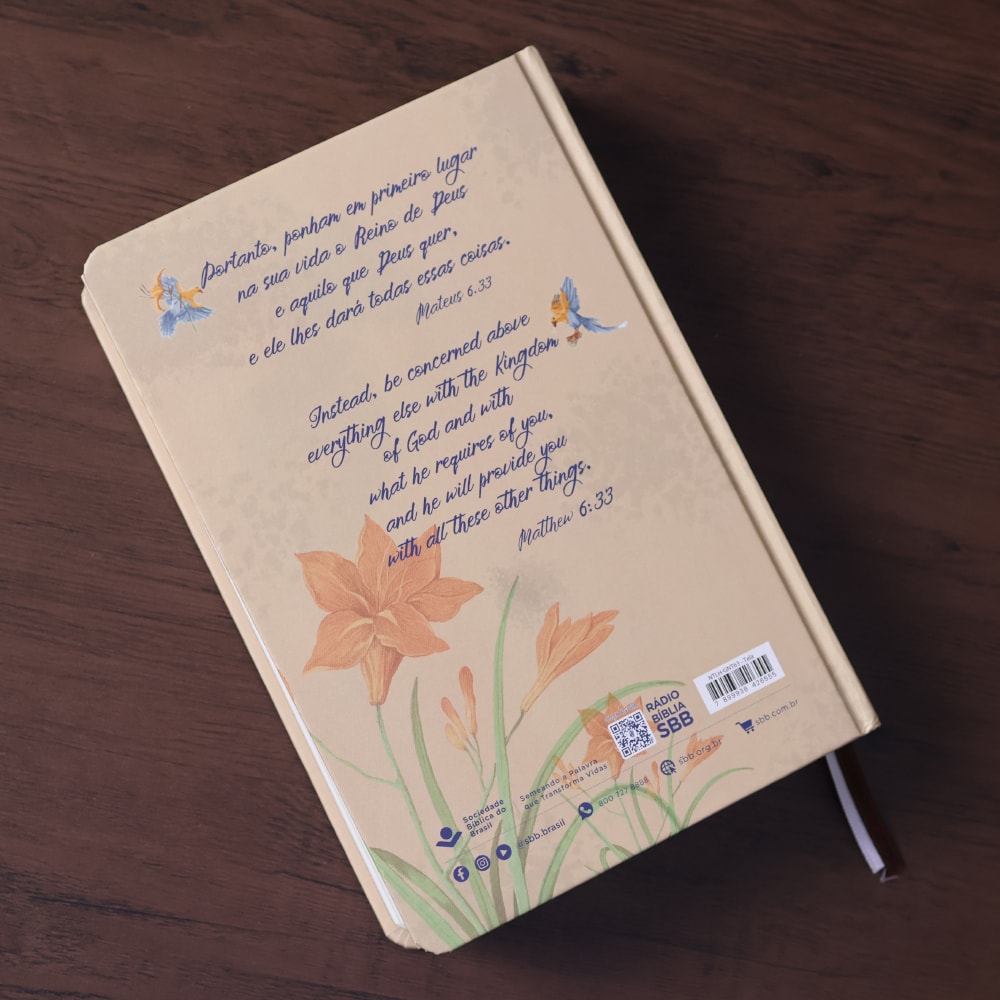 Portanto, ponham em primeiro lugar
na sua vida o Reino de Deus
e aquilo que Deus quer,
e ele lhes dará todas essas coisas.
Mateus 6.33
Instead, be concerned above
everything else with the Kingdom
of God and with
what he requires of you,
and he will provide you
with all these other things.
Matthew 6:33
Sociedade
Bíblica do
Brasil
Semeando a Palavra
que Transforma Vidas
RÁDIO
BÍBLIA
SBB
7 899938 426555
@sbb.brasil
800 727 8888
sbb.org.br
sbb.com.br